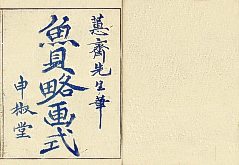 蕙齋先生筆
魚貝略画式
申椒堂